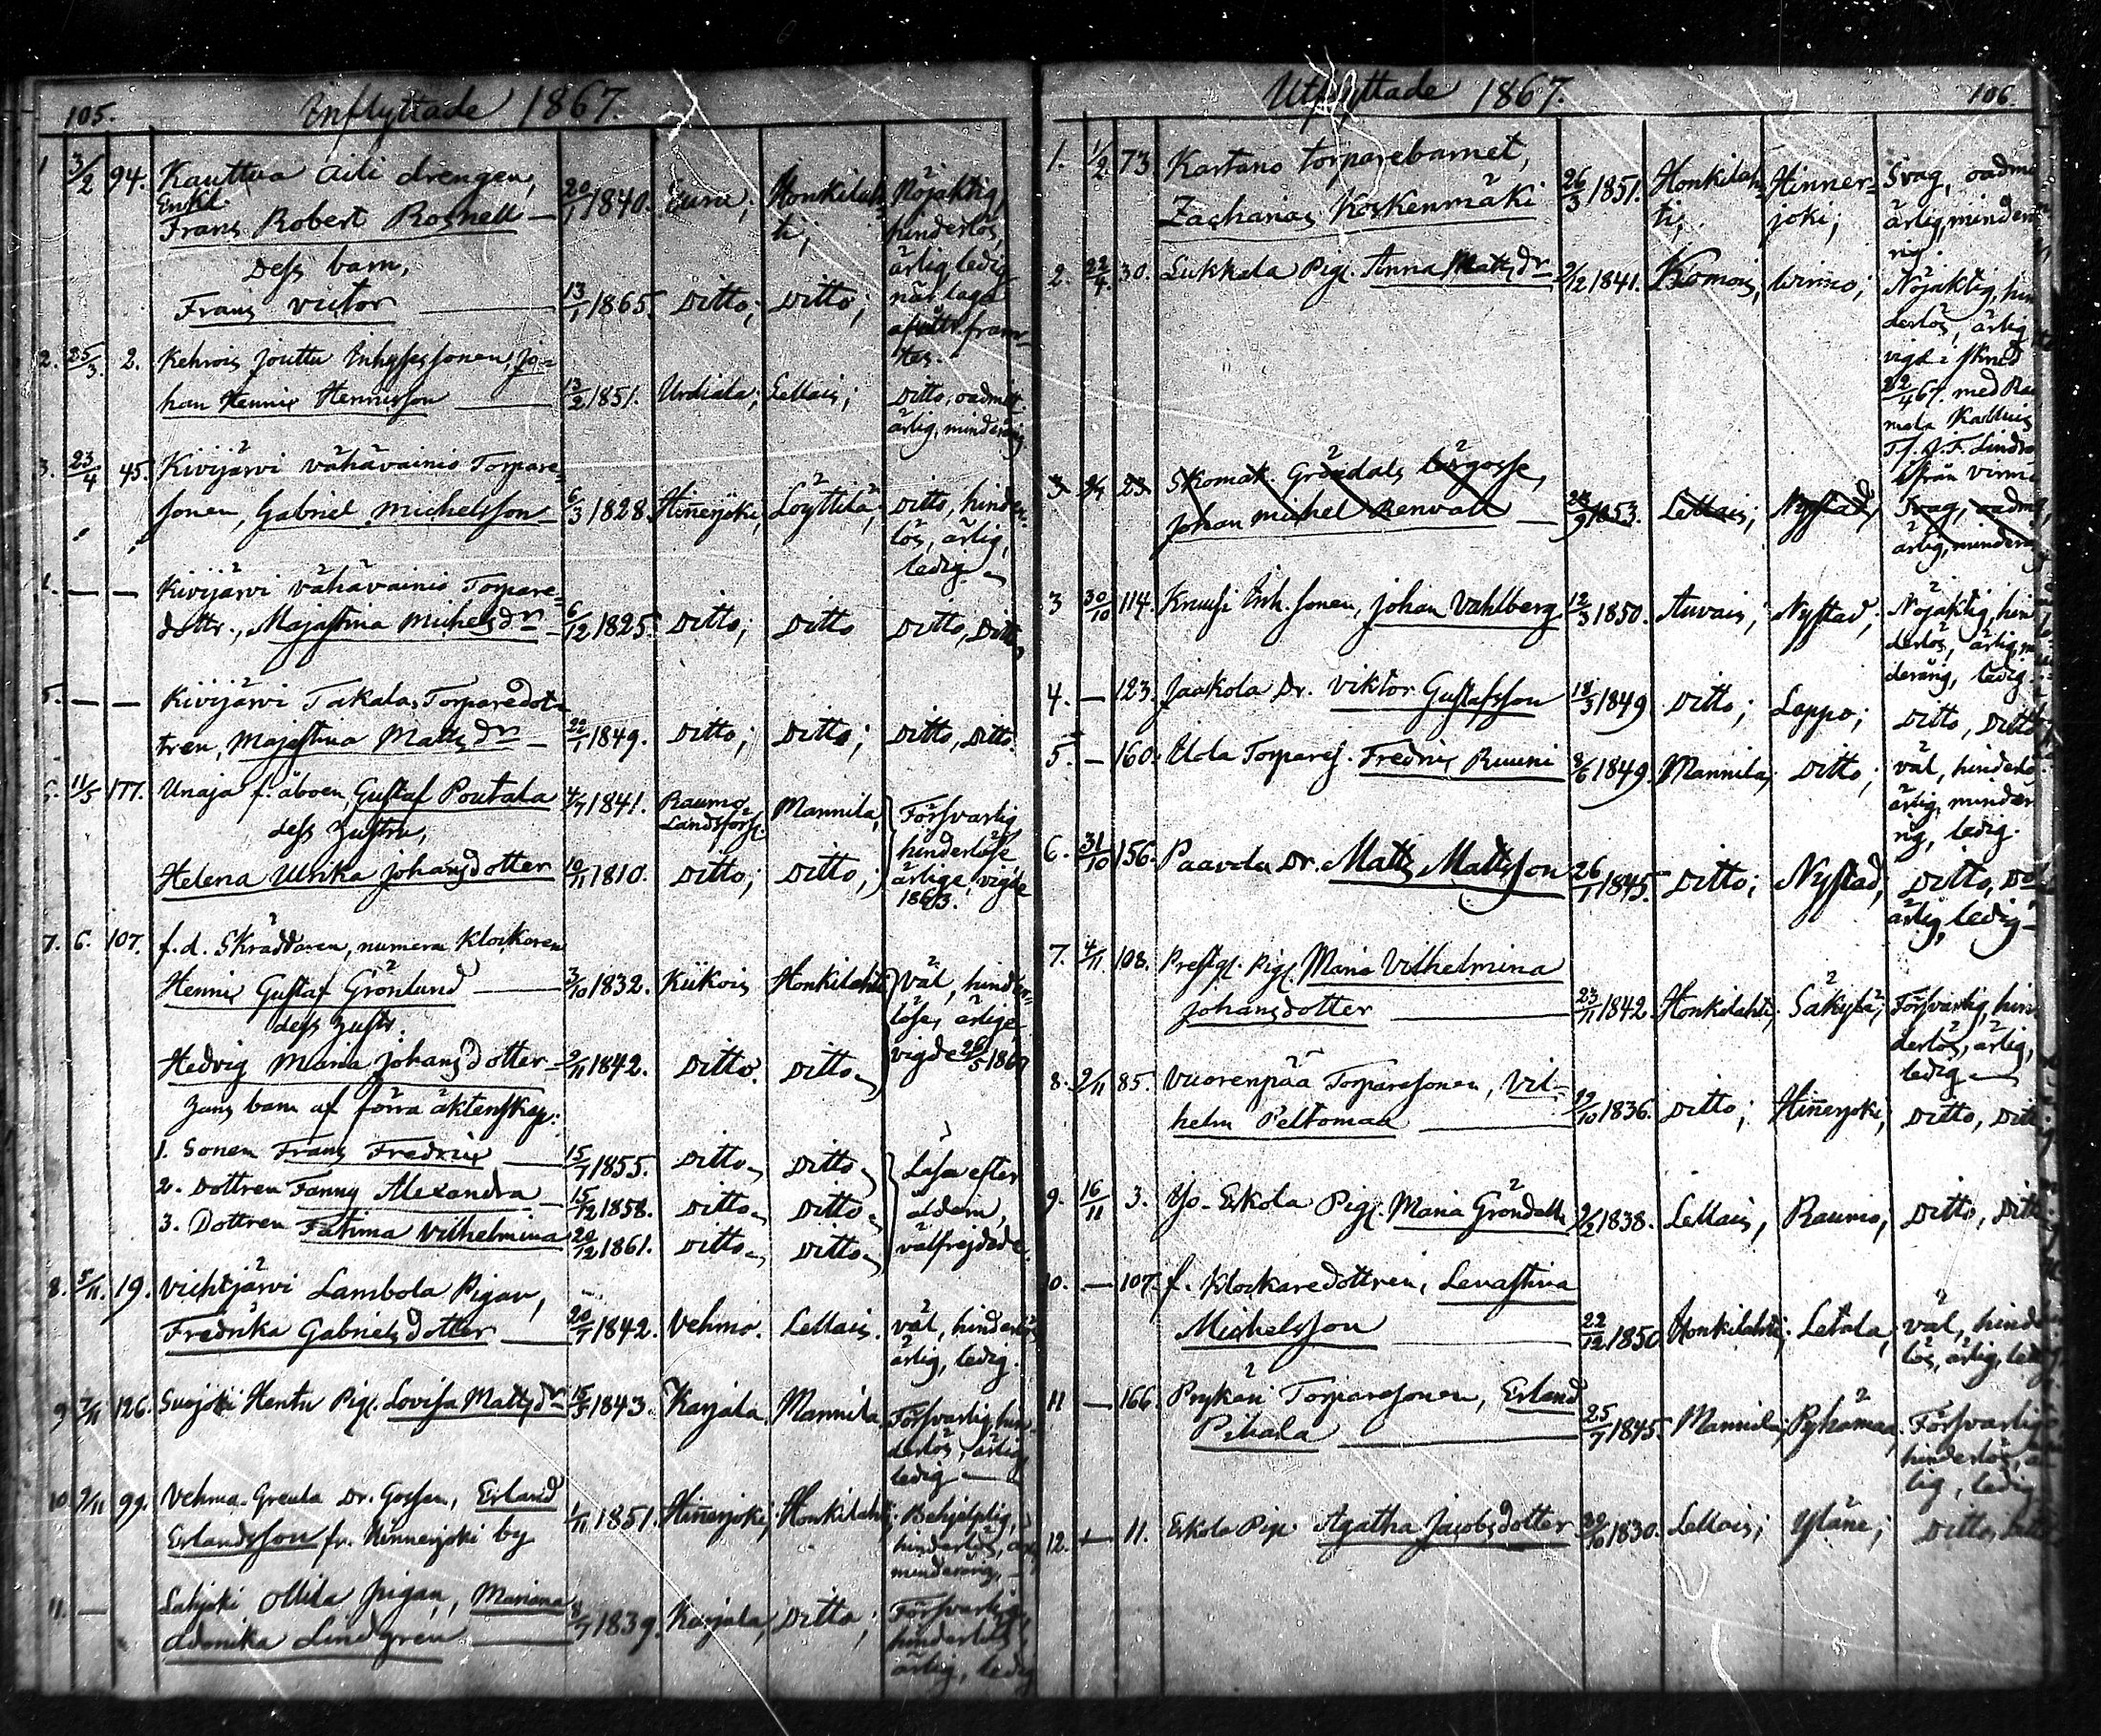 105. Inflyttade 1867.
1 3/2 94. Kauttua Aili drengen,
Enkl.
Frans Robert Rosnell — 20/1 1840. Eura; Honkilahti; Nöjaktig, hinderlös, ärlig, ledig
Dess barn,
Frans Victor — 13/1 1865. Ditto; Ditto;
2. 25/3. 2. Kehrois Jouttu Inhysessonen, Jo=
han Henric Henricsson — 13/2 1851. Urdiala; Lellais; Ditto, oadmitt. ärlig, minderårig
3. 23/4 45. Kivijärvi Vähävainio Torpare=
sonen, Gabriel Michelsson — 6/3 1828. Hinnerjoki; Löyttilä; Ditto, hinder=
lös, ärlig,
ledig
— — Kivijärvi Vähävainio Torpare=
dottr., Majastina Michelsdr — 6/12 1825. Ditto; Ditto Ditto, Ditto
5. — — Kivijärvi Takala, Torparedot=
tren, Majastina Mattsdr — 22/1 1849. Ditto; Ditto; Ditto, Ditto.
11/5 177. Unaja f. åboen, Gustaf Poutala 4/7 1841. Raumo Landsförs. Mannila, Försvarlig
dess hustru,
hinderlöse
Helena Ulrika Johansdotter 10/11 1810. Ditto; Ditto; ärlige, vigde
1863.
7. 6. 107. f.d. Skräddaren, numera Klockaren
Henric Gustaf Grönlund — 3/10 1832. Kiikois Honkilahti Väl, hinder=
dess hustr.
löse, ärlige,
Hedvig Maria Johansdotter — 9/11 1842. Ditto. Ditto vigde 26/5 186
hans barn af förra äktenskap:
1. Sonen Frans Fredric — 15/7 1855. Ditto Ditto Läsa efter
2. Dottren Fanny Alexandra — 15/12 1858. Ditto Ditto åldern,
3. Dottren Fatima Vilhelmina 20/12 1861. Ditto Ditto välfrejdade.
8. 5/11. 19. Vichtjärvi Lambola Pigan,
Fredrika Gabrielsdotter — 20/7 1842. Vehmo. Lellais. väl, hinderlös
ärlig, ledig.
9 7/11 126. Suojoki Hentu Pig. Lovisa Mattsdr 15/3 1843. Karjala. Mannila Försvarlig, hin=
derlös, ärlig
ledig —
10. 9/11 99. Vehma Greula Dr. Gossen, Erland
Erlandsson fr. Hinnerjoki by 1/11 1851. Hinnerjoki; Honkilahti; Behjelplig,
hinderlös,
minderårig, —
11. — Lahjoki Ollila pigan, Mariana
Adonika Lindgren — 8/7 1839. Karjala, Ditto; Försvarlig,
hinderlös,
ärlig, ledig
Utflyttade 1867. 106.
1. 1/2. 73 Kartano torparebarnet,
Zacharias Koskenmäki 26/3 1851. Honkilahti; Hinnerjoki; Svag, ärlig, minderå
rig.
2. 22/4. 30. Lukkala Pig. Anna Mattsdr 9/12 1841. Komois, Virmo; Nöjaktig, hin
derlös, ärlig
22/4 67. med
ifrån Virmo
3 23 Skomak. Gröndals lärgosse,
Johan Michel Renvall — 1853. Lellais; Nystad, Svag,
ärlig, minderå
3 30/10 114. Knuusi Inh. sonen, Johan Vahlberg 12/3 1850. Auvais; Nystad; Nöjaktig, hin
derlös, ärlig,
derårig, ledig
4. — 123. Jaakola Dr. Viktor Gustafsson 18/3 1849 Ditto; Lappo; Ditto, Ditto
5. — 160. Uola Torpares. Fredric Ruuni 8/6 1849. Mannila; Ditto; väl, hinderlö
ärlig, minderå
rig, ledig.
6. 31/10 156. Paavola Dr. Matts Mattsson 26/1 1845. Ditto; Nystad, Ditto,
ärlig, ledig
7. 4/11 108. Prestg. Pig. Maria Vilhelmina
Johansdotter — 23/11 1842. Honkilahti; Säkylä; Försvarlig, hin
derlös, ärlig,
ledig
8. 9/11 85. Vuorenpää Torparesonen, Vil=
helm Peltomaa — 29/10 1836. Ditto; Hinnerjoki; Ditto,
9. 16/11 3. Yo-Eskola Pig. Maria Gröndahl 1838. Lellais, Raumo, Ditto,
10. — 107. f. Klockaredottren, Lenastina
Michelsson — 22/12 1850 Honkilahti; Letala, väl, hinder
lös, ärlig, ledig
11 — 166. Prykäri Torparesonen, Erland
Pihala — 25/7 1845. Mannila; Pyhämaa, Försvarlig
hinderlös, är
lig, ledig
12. — 11. Eskola Pig. Agatha Jacobsdotter 1830. Lellais; Yläne; Ditto,